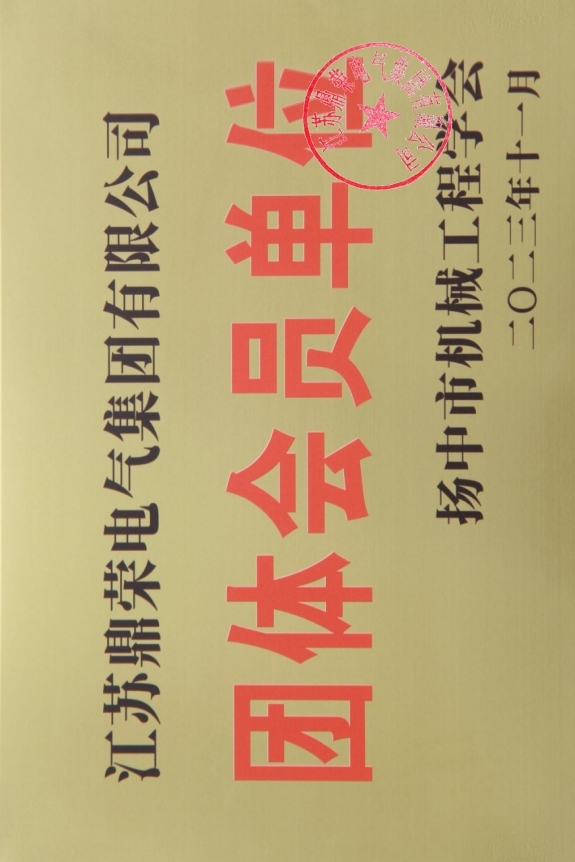 江苏鼎荣电气集团有限公司
团体会员单位
扬中市机械工程学会
二〇二三年十一月
江苏鼎荣电气集团有限公司